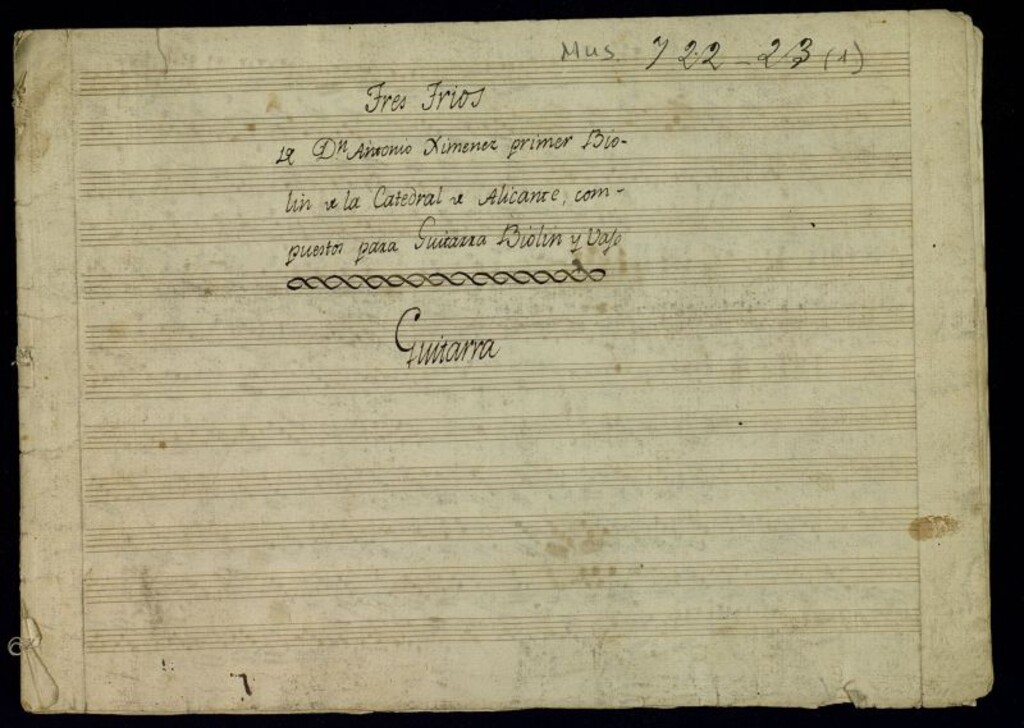 Mus. 722-23 (1)
Tres Trios
de Dn Antonio Ximenez primer Bio-
lin de la Catedral de Alicante, com-
puestos para Guitarra Biolin y Vajo
Guitarra